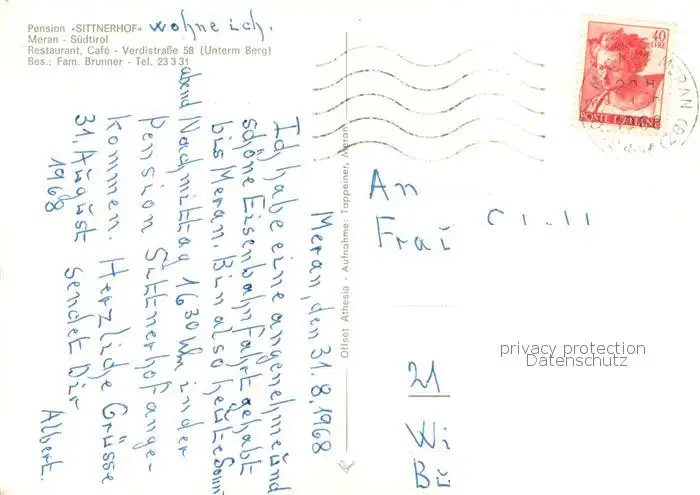 Pension »SITTNERHOF« wohne ich.
Meran - Südtirol
Restaurant, Café - Verdistraße 58 (Unterm Berg)
Bes.: Fam. Brunner - Tel. 23 3 31
Meran, den 31.8.1968
Ich habe eine angenehme und
schöne Eisenbahnfahrt gehabt
bis Meran. Bin also heute Sonn
abend Nachmittag 1630 Uhr in der
Pension Sittnerhof ange-
kommen. Herzliche Grüsse
31. August sendet Dir
1968 Albert.
Offset Athesia - Aufnahme: Tappeiner, Meran
40
LIRE
POSTE ITALIANE
MERAN (BZ)
An
Frau
21
Wi
Bü
privacy protection
Datenschutz